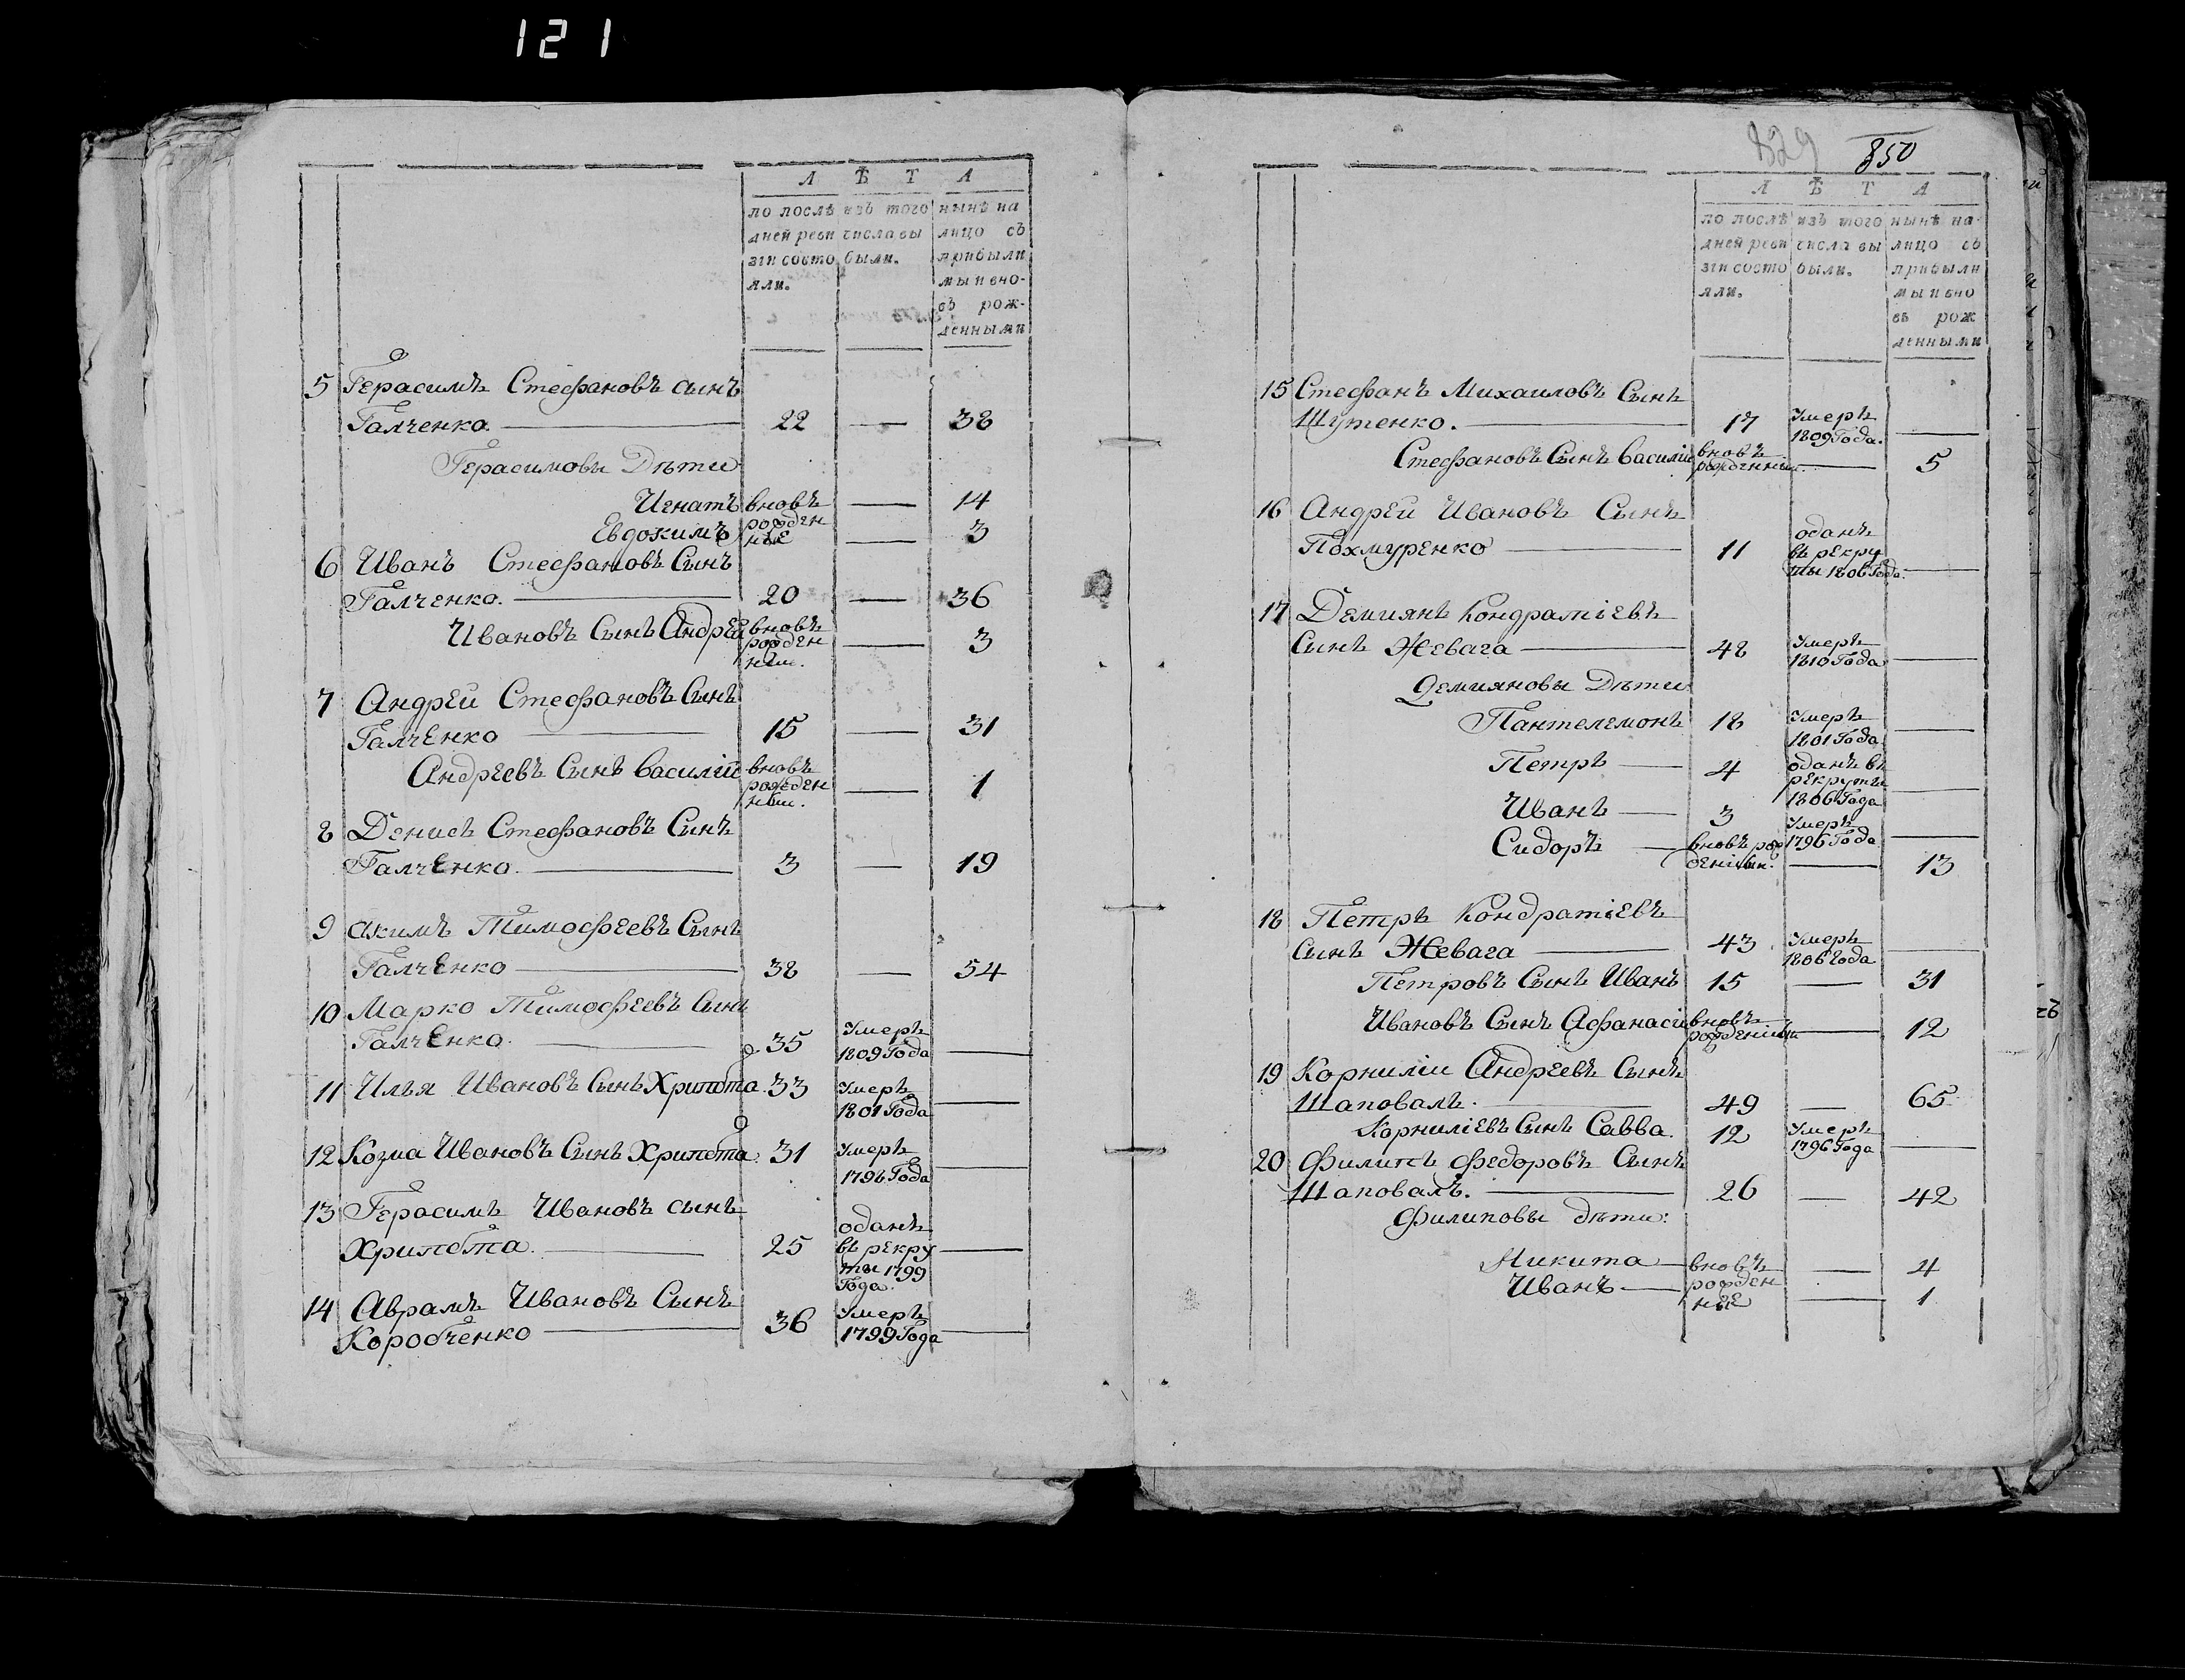 121
Л Ѣ Т А
по послѣ изъ того нынѣ на
дней реви числа вы лицо съ
зіи состо были. прибыли
яли. мы и вно-
въ рож-
денными
5 Герасимъ Стефановъ сынъ
Галченко. 22 — 38
Герасимовы Дѣти
Игнатъ вновь — 14
Евдокимъ рожден ные — 3
6 Иванъ Стефановъ Сынъ
Галченко. 20 — 36
Ивановъ Сынъ Андрей вновь рожден ный. — 3
7 Андрей Стефановъ Сынъ
Галченко 15 — 31
Андреевъ Сынъ Василий вновь рожден ный. — 1
8 Денисъ Стефановъ Сынъ
Галченко. 3 — 19
9 Акимъ Тимофеевъ Сынъ
Галченко 38 — 54
10 Марко Тимофеевъ Сынъ
Галченко. 35 Умеръ 1809 Года —
11 Илья Ивановъ Сынъ Хрипота 33 Умеръ 1801 Года —
12 Козма Ивановъ Сынъ Хрипота. 31 Умеръ 1796 Года —
13 Герасимъ Ивановъ сынъ
Хрипота. 25 оданъ въ рекру ты 1799 Года. —
14 Аврамъ Ивановъ Сынъ
Коробченко 36 Умеръ 1799 Года —
829 850
Л Ѣ Т А
по послѣ изъ того нынѣ на-
дней реви числа вы лицо съ
зіи состо были. прибыли
яли. мы и вно
въ рож
денными
15 Стефанъ Михаиловъ Сынъ
Шутенко. 17 Умеръ 1809 Года. —
Стефановъ Сынъ Василий вновь рожденный — 5
16 Андрей Ивановъ Сынъ
Похмуренко 11 оданъ въ рекру ты 1806 Года. —
17 Демиянъ Кондратіевъ
Сынъ Жевага 48 Умеръ 1810 Года —
Демияновы Дѣти
Пантелемонъ 18 Умеръ 1801 Года —
Петръ 4 оданъ въ рекруты 1806 Года —
Иванъ 3 Умеръ 1796 Года —
Сидоръ вновь рож денный. — 13
18 Петръ Кондратіевъ
Сынъ Жевага 43 Умеръ 1806 Года —
Петровъ Сынъ Иванъ 15 — 31
Ивановъ Сынъ Афанасий вновь рожденный — 12
19 Корнилій Андреевъ Сынъ
Шаповалъ. 49 — 65
Корниліевъ Сынъ Савва. 12 Умеръ 1796 Года —
20 Филипъ Федоровъ Сынъ
Шаповалъ. 26 — 42
Филиповы дѣти:
Никита вновь — 4
Иванъ рожден ные — 1